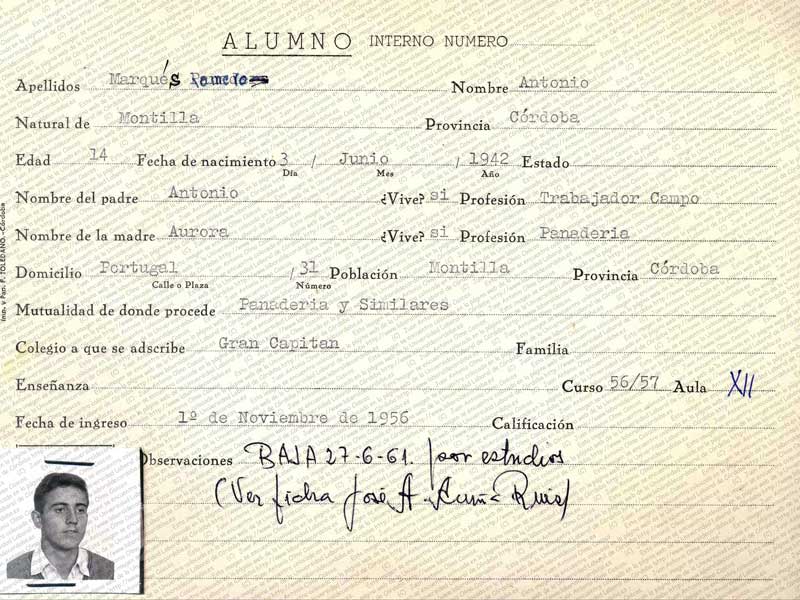 ALUMNO INTERNO NUMERO
Apellidos Marqués Nombre Antonio
Natural de Montilla Provincia Córdoba
Edad 14 Fecha de nacimiento 3 / Junio / 1942 Estado
Día Mes Año
Nombre del padre Antonio ¿Vive? si Profesión Trabajador Campo
Nombre de la madre Aurora ¿Vive? si Profesión Panaderia
Domicilio Portugal / 31 Población Montilla Provincia Córdoba
Calle o Plaza Número
Mutualidad de donde procede Panaderia y Similares
Colegio a que se adscribe Gran Capitan Familia
Enseñanza Curso 56/57 Aula XII
Fecha de ingreso 1º de Noviembre de 1956 Calificación
Observaciones BAJA 27-6-61. por estudios
(Ver ficha José A. Acuña Ruis)
Imp. y Pap. F. TOLEDANO.-Córdoba